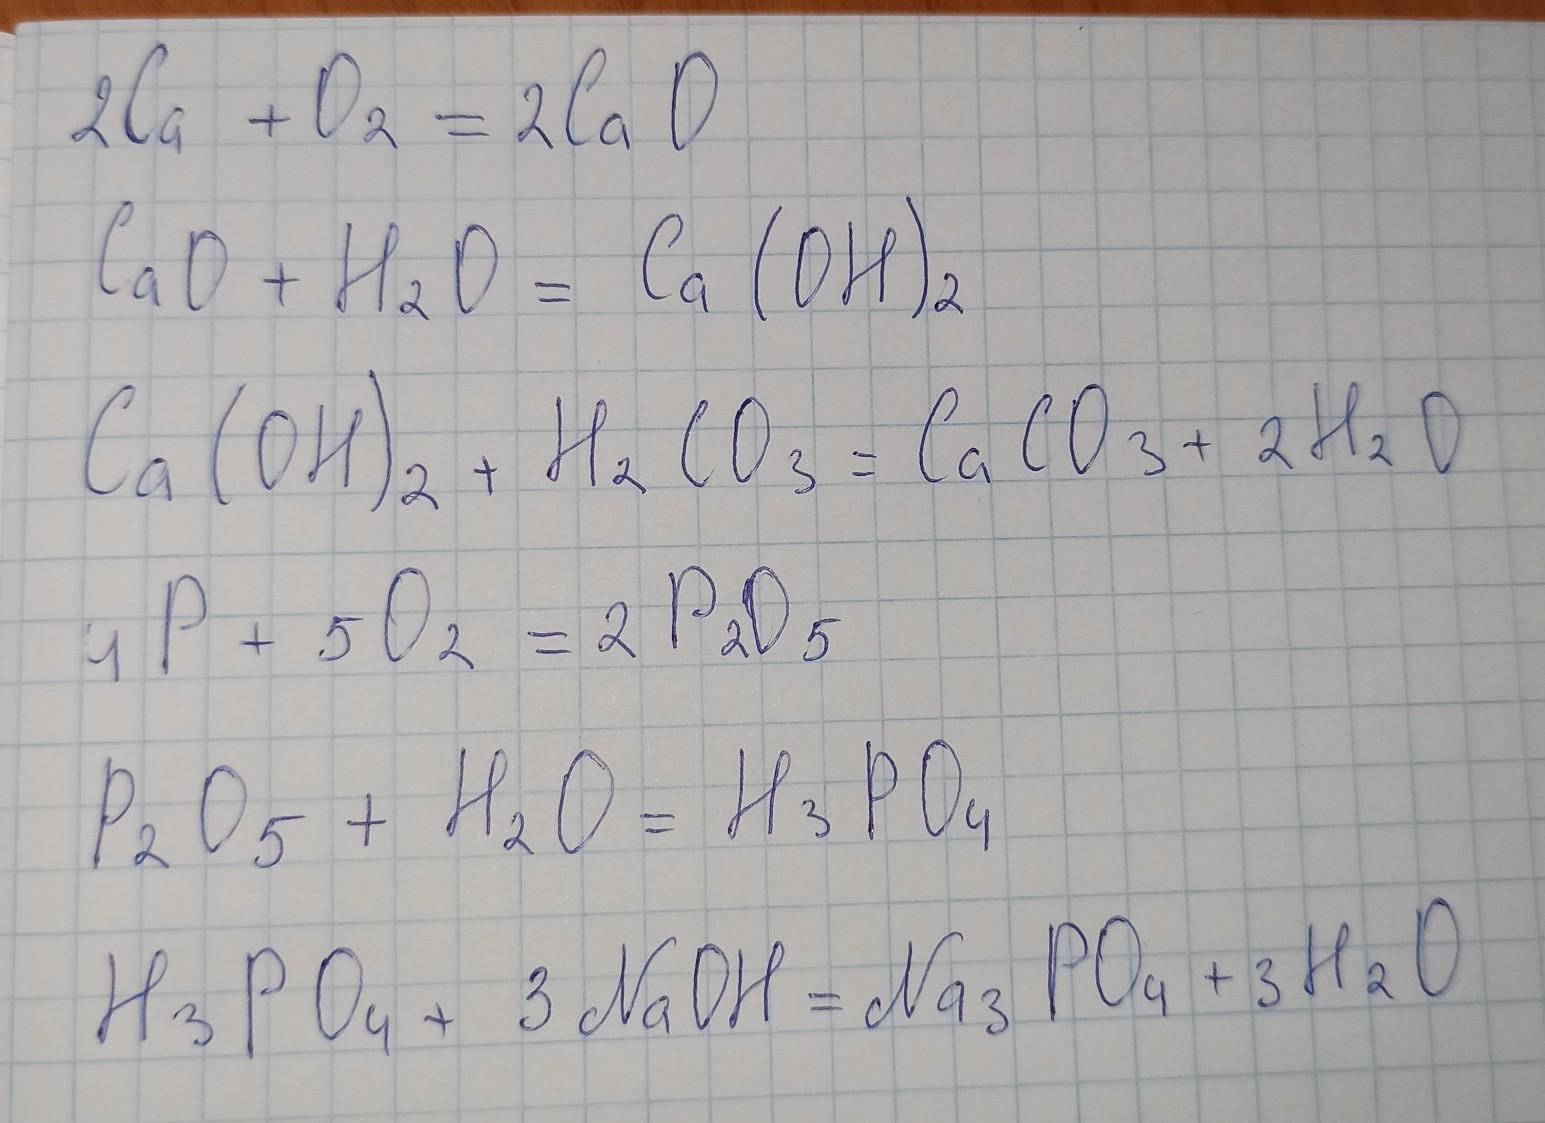 2Ca + O2 = 2CaO
CaO + H2O = Ca(OH)2
Ca(OH)2 + H2CO3 = CaCO3 + 2H2O
4P + 5O2 = 2P2O5
P2O5 + H2O = H3PO4
H3PO4 + 3NaOH = Na3PO4 + 3H2O